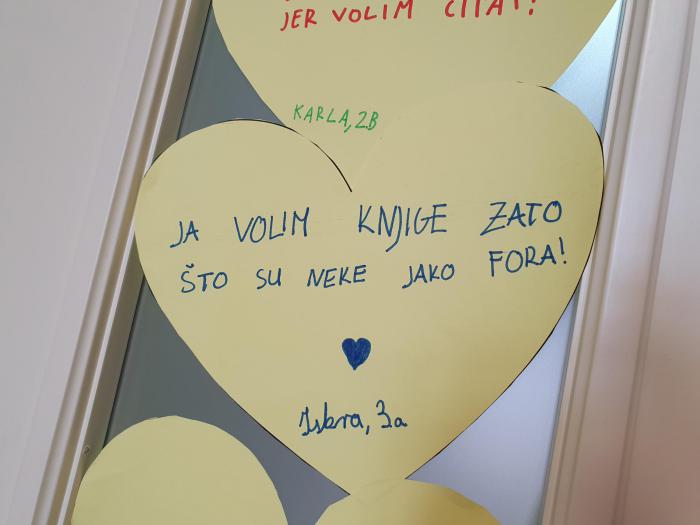 JER VOLIM ČITAT!
KARLA, 2B
JA VOLIM KNJIGE ZATO
ŠTO SU NEKE JAKO FORA!
Iskra, 3a